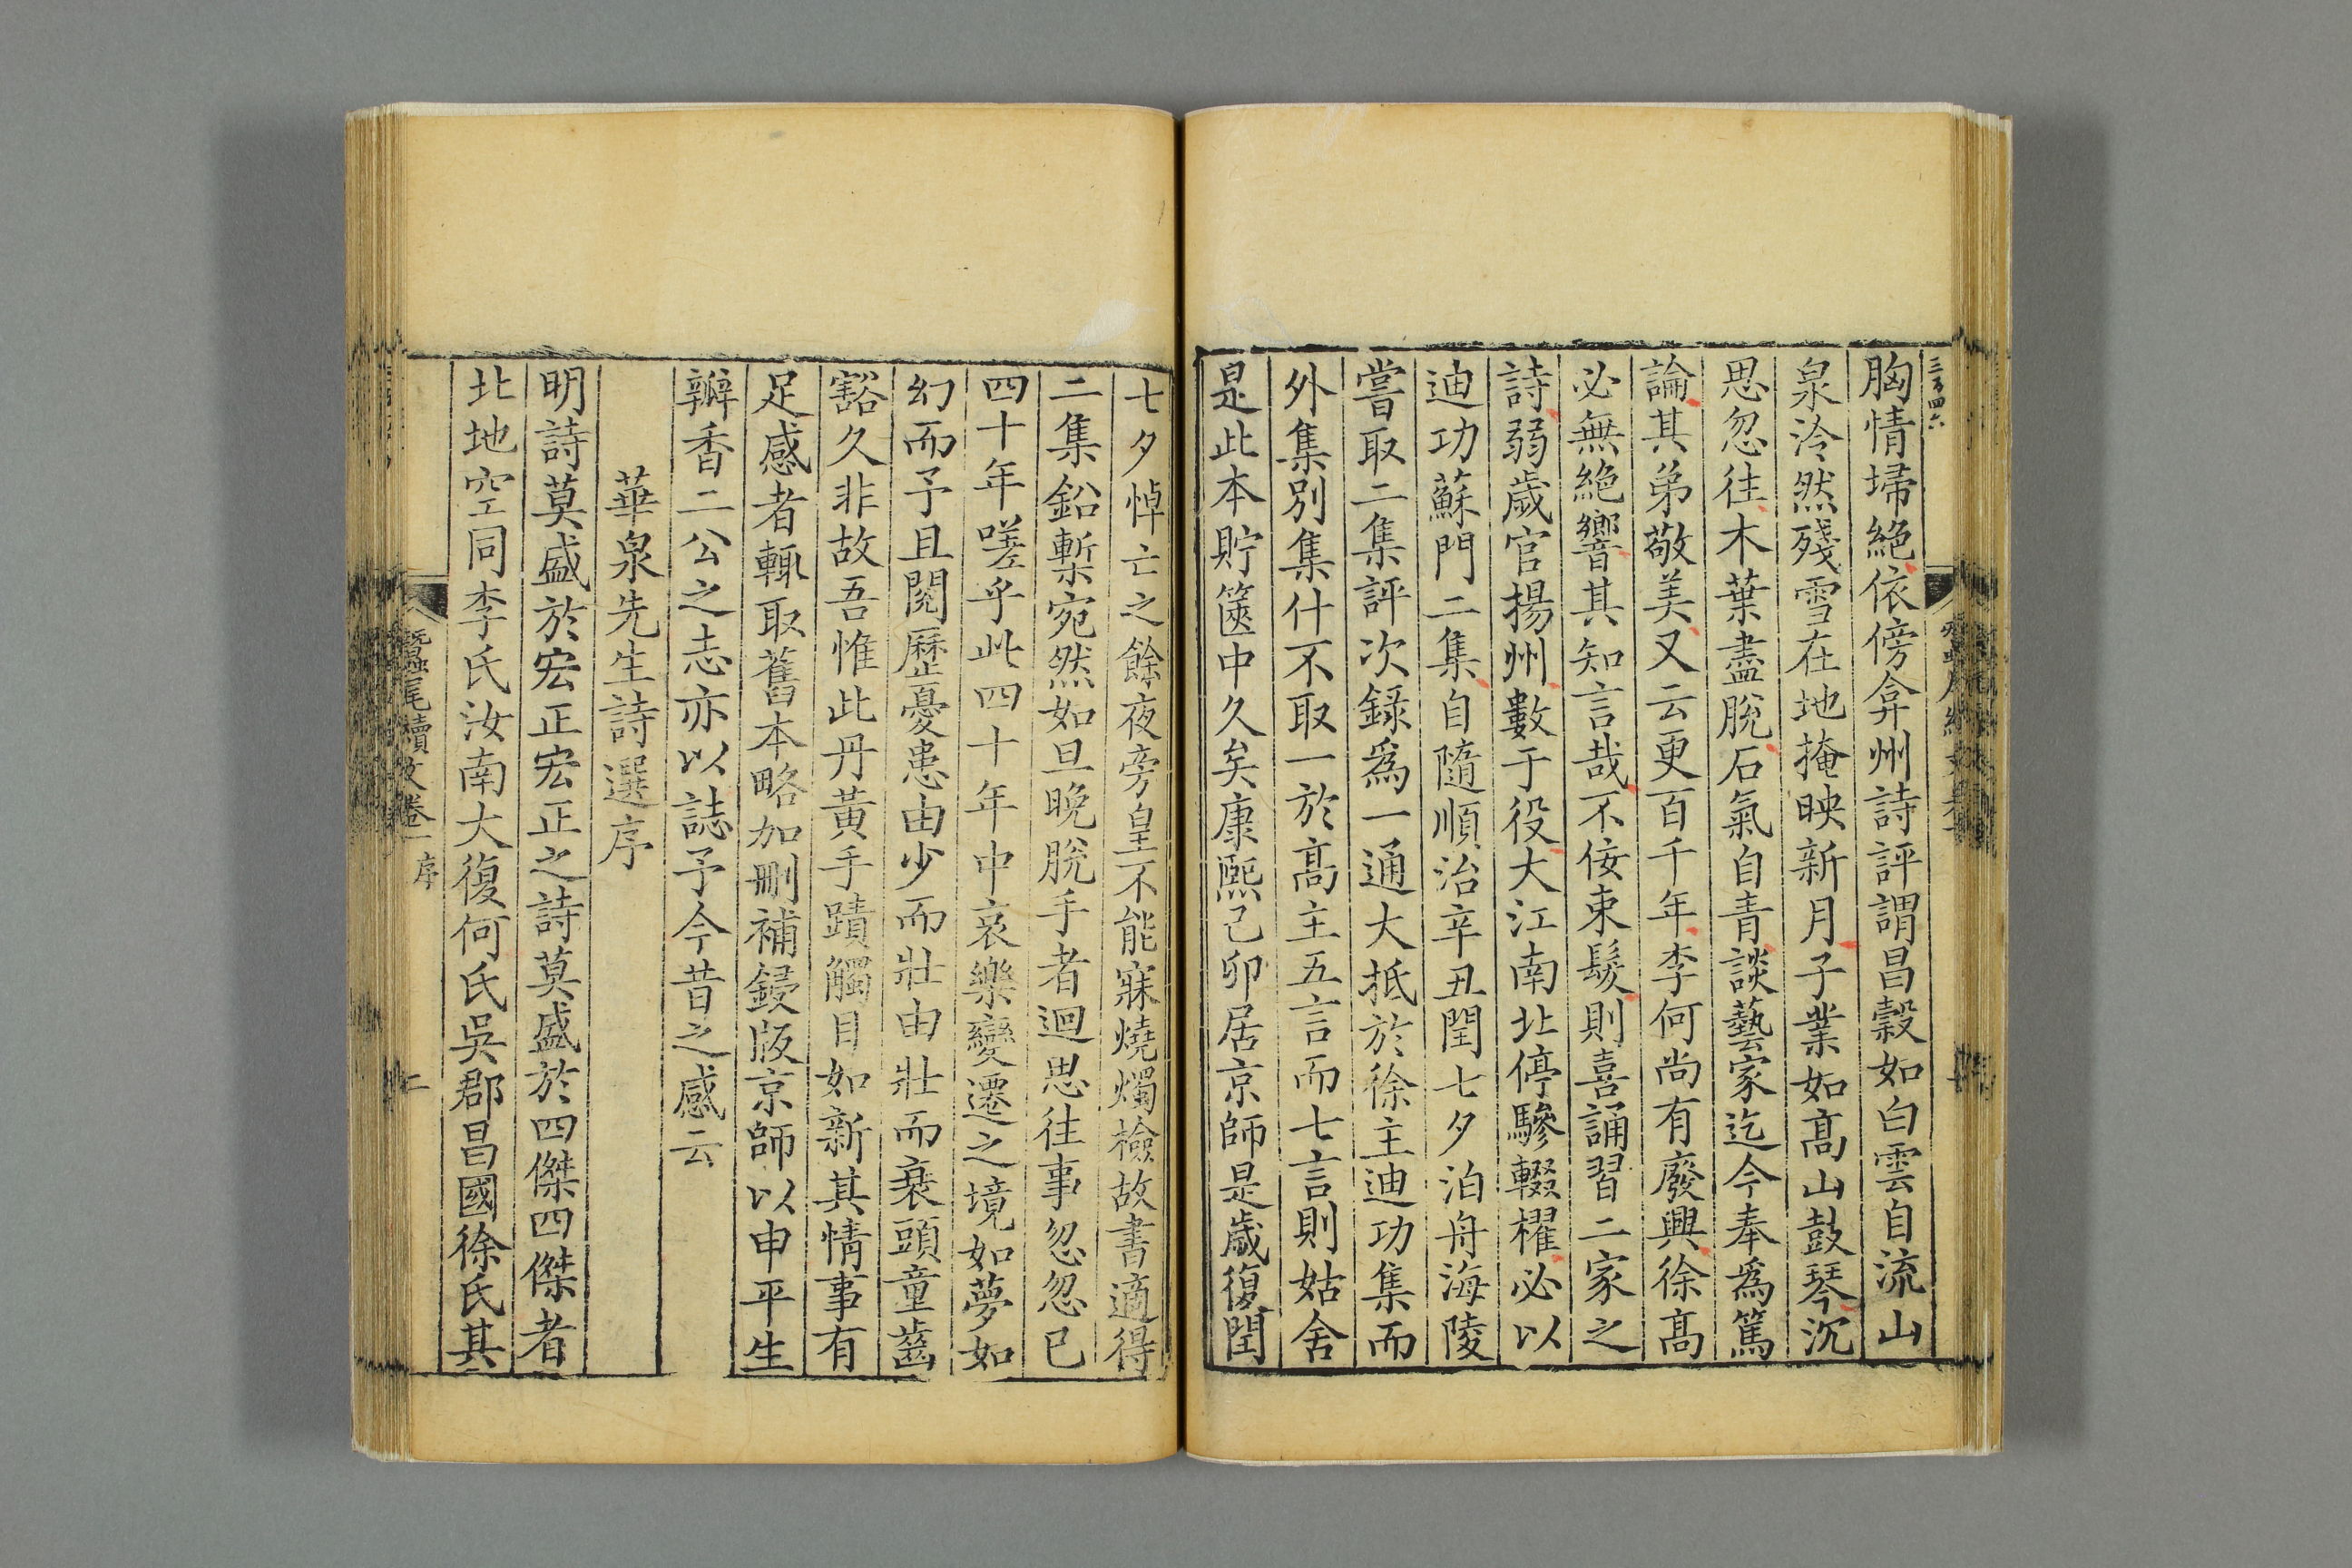 三百四六
胸情埽絶依傍弇州詩評謂昌穀如白雲自流山
泉泠然殘雪在地掩映新月子業如髙山鼓琴沉
思忽往木葉盡脫石氣自青談藝家迄今奉爲篤
論其弟敬美又云更百千年李何尚有廢興徐髙
必無絶響其知言哉不佞束髮則喜誦習二家之
詩弱歲官揚州數于役大江南北停驂輟櫂必以
迪功蘇門二集自隨順治辛丑閏七夕泊舟海陵
嘗取二集評次錄爲一通大抵於徐主迪功集而
外集別集什不取一於髙主五言而七言則姑舍
是此本貯篋中久矣康熙己卯居京師是歲復閏
七夕悼亡之餘夜旁皇不能寐燒燭檢故書適得
二集鉛槧宛然如旦晚脫手者迴思往事忽忽已
四十年嗟乎此四十年中哀樂變遷之境如夢如
幻而予且閱歷憂患由少而壯由壯而衰頭童齒
豁久非故吾惟此丹黃手蹟觸目如新其情事有
足感者輒取舊本略加刪補鋟版京師以申平生
瓣香二公之志亦以誌予今昔之感云
華泉先生詩選序
明詩莫盛於宏正宏正之詩莫盛於四傑四傑者
北地空同李氏汝南大復何氏吳郡昌國徐氏其
蠶尾續文卷一 序 二